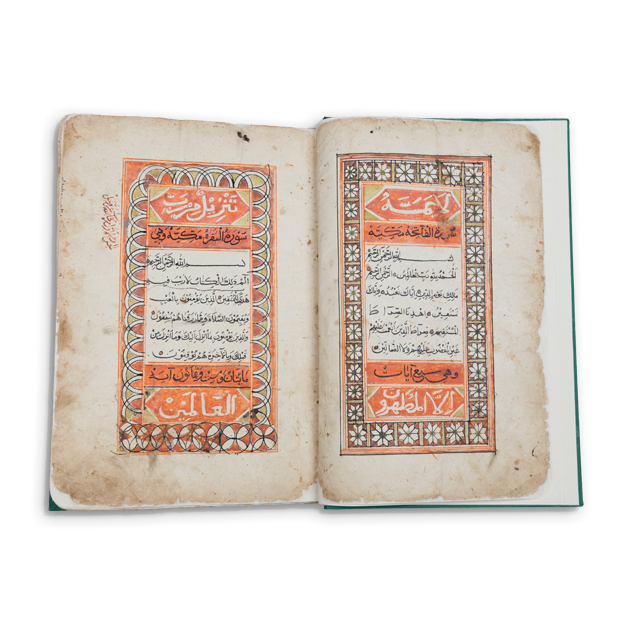 لا يمسه
سورة الفاتحة مكية
بسم الله الرحمن الرحيم
الحمد لله رب العالمين الرحمن الرحيم
ملك يوم الدين اياك نعبد واياك
نستعين اهدنا الصراط
المستقيم صراط الذين انعمت عليهم
غير المغضوب عليهم ولا الضالين
وهي سبع آيات
إلا المطهرون
تنزيل من رب
سورة البقرة مكية وهي
بسم الله الرحمن الرحيم
الم ذلك الكتاب لا ريب فيه
هدى للمتقين الذين يؤمنون بالغيب
ويقيمون الصلاة ومما رزقناهم ينفقون
والذين يؤمنون بما انزل اليك وما انزل من
قبلك وبالآخرة هم يوقنون
مايتان وست وثمانون آية
العالمين